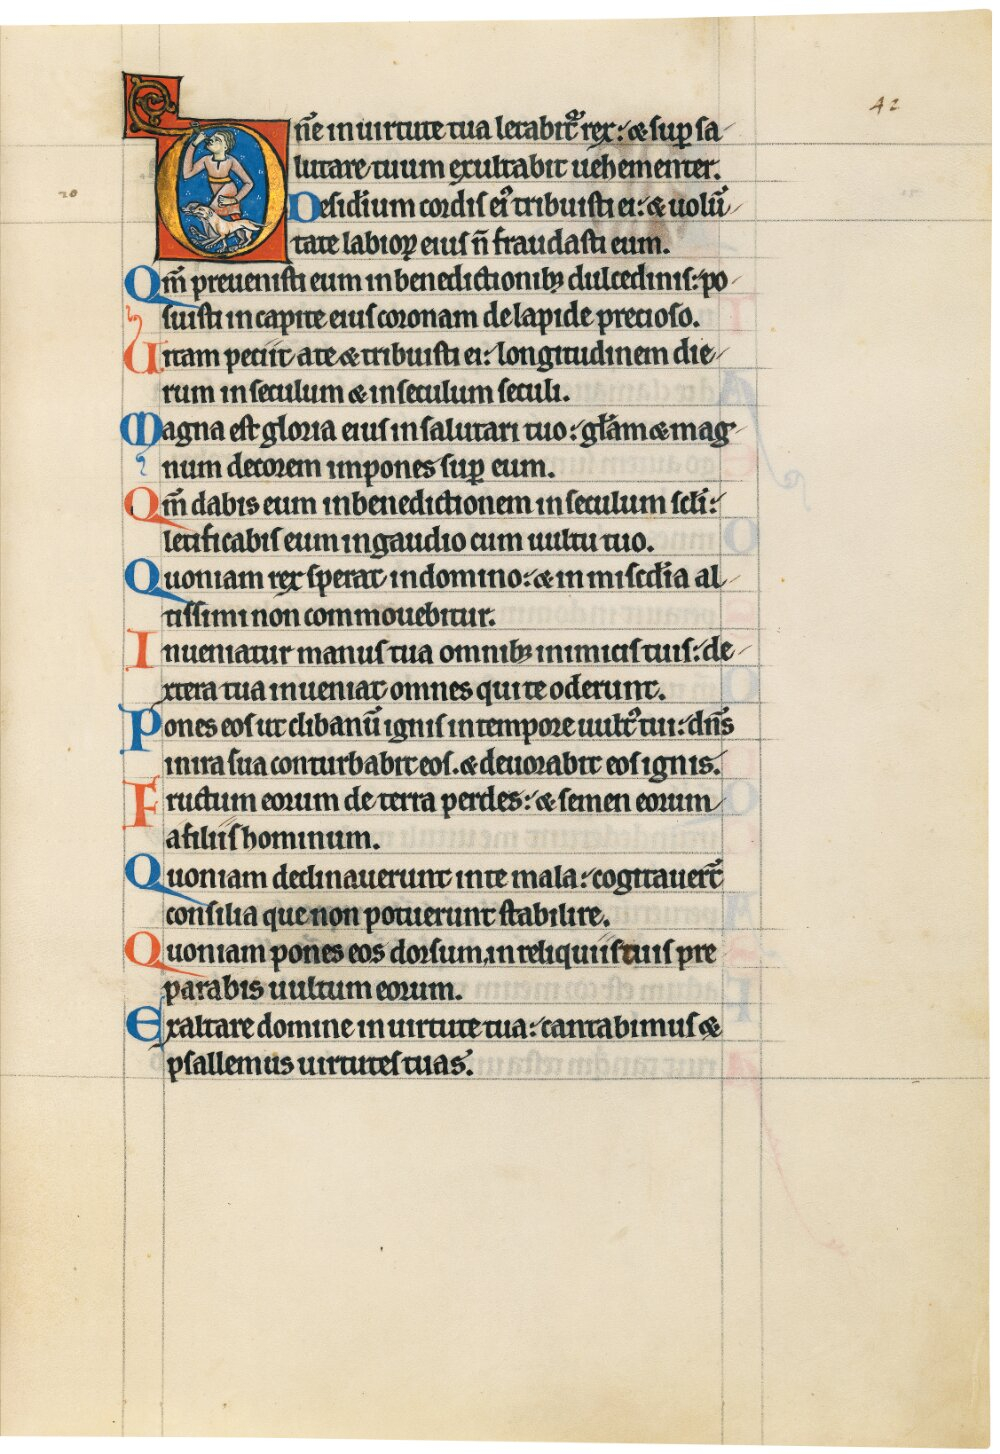 42
Dn̄e in uirtute tua letabit᷑ rex: & sup̱ sa
lutare tuum exultabit uehementer.
20
Desid̓ium cordis ei᷒ tribuisti ei: & uolū
tate labioꝝ eius n̄ fraudasti eum.
Qm̄ preuenisti eum in benedictionibꝫ dulcedinis: po
suisti in capite eius coronam de lapide precioso.
Uitam petiit a te & tribuisti ei: longitudinem die
rum in seculum & in seculum seculi.
Magna est gloria eius in salutari tuo: gl̓am & mag
num decorem impones sup̱ eum.
Qm̄ dabis eum in benedictionem in seculum scl̓i:
letificabis eum in gaudio cum uultu tuo.
Quoniam rex sperat in domino: & in misc̓dia al
tissimi non commouebitur.
Inueniatur manus tua omnibꝫ inimicis tuis: de
xtera tua inueniat omnes qui te oderunt.
Pones eos ut clibanū ignis in tempore uult᷒ tui: dn̄s
in ira sua conturbabit eos. & deuorabit eos ignis.
Fructum eorum de terra perdes: & semen eorum
a filiis hominum.
Quoniam declinauerunt in te mala: cogitauer̄t
consilia que non potuerunt stabilire.
Quoniam pones eos dorsum, in reliquiis tuis pre
parabis uultum eorum.
Exaltare domine in uirtute tua: cantabimus &
psallemus uirtutes tuas.